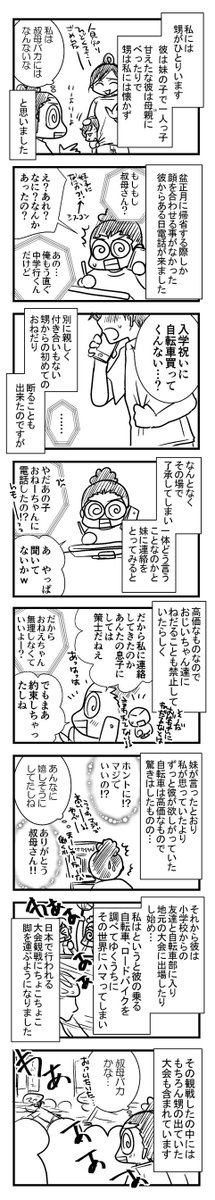 私には
甥がひとりいます
彼は妹の子で一人っ子
甘えたな彼は母親に
べったりで
甥は私には懐かず
私は
叔母バカには
なんないな
と思いました
盆正月に帰省する際しか
顔を合わせる事がなかった
彼からある日電話が来ました
もしもし
叔母さん？
え？あれ？
なに？なんか
あったの？
あの…
俺もう直ぐ
中学行くん
だけど
入学祝いに
自転車買って
くんない…？
別に親しく
付き合いもない
甥からの初めての
おねだり
……
断ることも
出来たのですが
なんとなく
その場で
了承してしまい
一体どう言う
ことなのかと
妹に連絡を
とってみると
やだあの子
おねーちゃんに
電話したの!?
あ やっぱ
聞いて
ないかw
高価なものなので
おじいちゃん達に
ねだることも禁止して
いたらしく
だから私に連絡
してきたのか
あんたの息子に
しては
策士だねえ
だから
おねえちゃん
無理しなくて
いいよー？
でもまあ
約束しちゃっ
たしね
妹が言ったとおり
私が思っていたより
ずっと彼が欲しがっていた
自転車は高価なもので
驚きはしたものの…
ホントに!?
マジで
いいの!?
ありがとう
叔母さん!!
あんなに
嬉しそうに
してたしね
それから彼は
小学校からの
友達と自転車部に入り
地元の大会に出場したり
し始め…
私はというと彼の乗る
自転車、ロードバイクを
調べてゆくうちに
その世界にハマってしまい
日本で行われる
大会観戦にちょこちょこ
脚を運ぶようになりました
その観戦した中には
もちろん甥の出ていた
大会も含まれています
叔母バカ
かな…